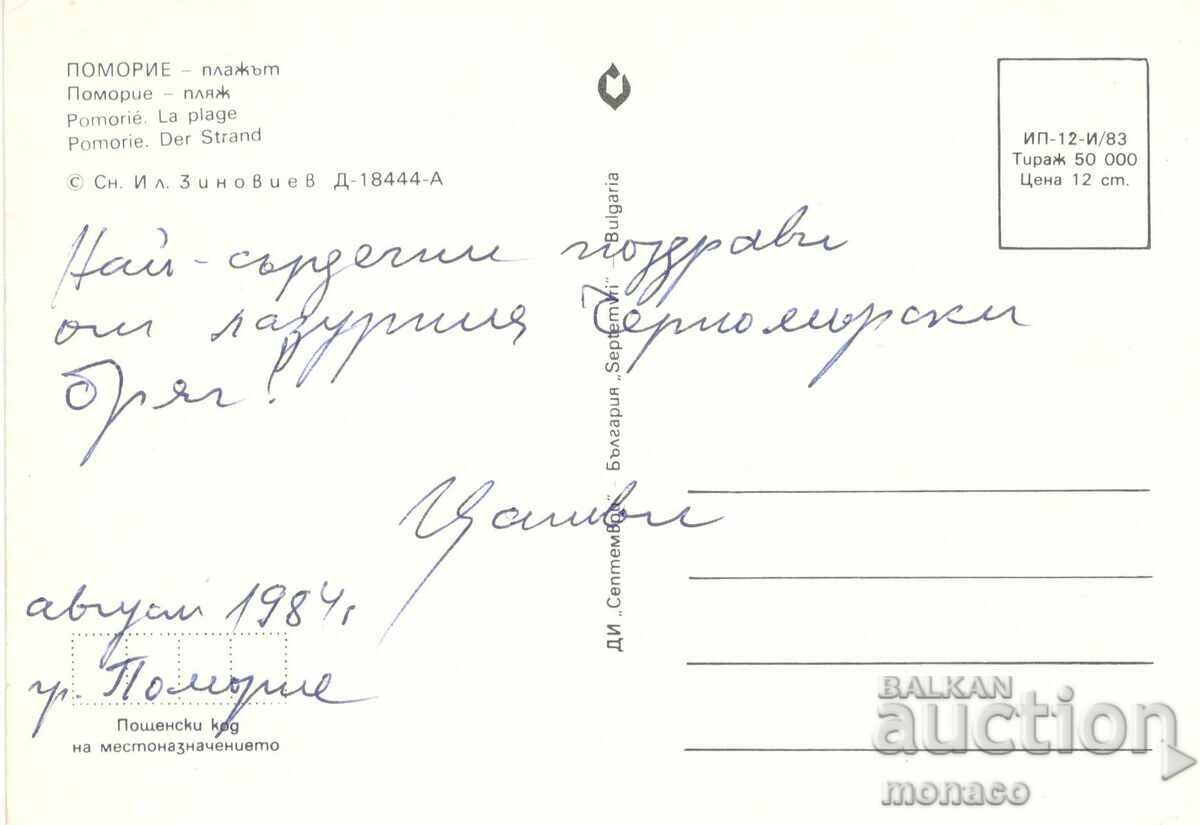 ПОМОРИЕ – плажът
Поморие – пляж
Pomorié. La plage
Pomorie. Der Strand
© Сн. Ил. Зиновиев Д-18444-А
ИП-12-И/83
Тираж 50 000
Цена 12 ст.
Най-сърдечни поздрави
от лазурния Черноморски
бряг!
август 1984 г.
гр. Поморие
Пощенски код
на местоназначението
ДИ „Септември" – България „Septemvri" – Bulgaria
BALKAN
auction
monaco